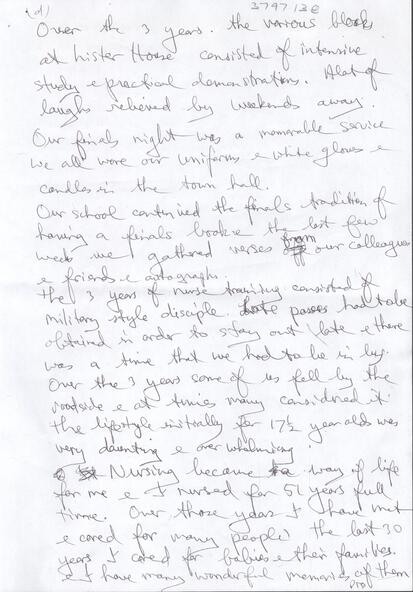 (d)
3747/3E
Over the 3 years. the various blocks
at Lister House consisted of intensive
study & practical demonstrations. Alot of
laughs relieved by weekends away.
Our finals night was a memorable service
we all wore our uniforms & white gloves &
candles in the town hall.
Our school continued the finals tradition of
having a finals book & the last few
weeks we gathered verses from our colleagues
& friends & autographs.
the 3 years of nurse training consisted of
military style disciple. Late passes had to be
obtained in order to stay out late & there
was a time that we had to be in by.
Over the 3 years some of us fell by the
roadside & at times many considered it.
the lifestyle initially for 17½ year olds was
very daunting & over whelming
Nursing became way of life
for me & I nursed for 51 years full
time. Over those years I have met
& cared for many people the last 30
years I cared for babies & their families.
& I have many wonderful memories of them